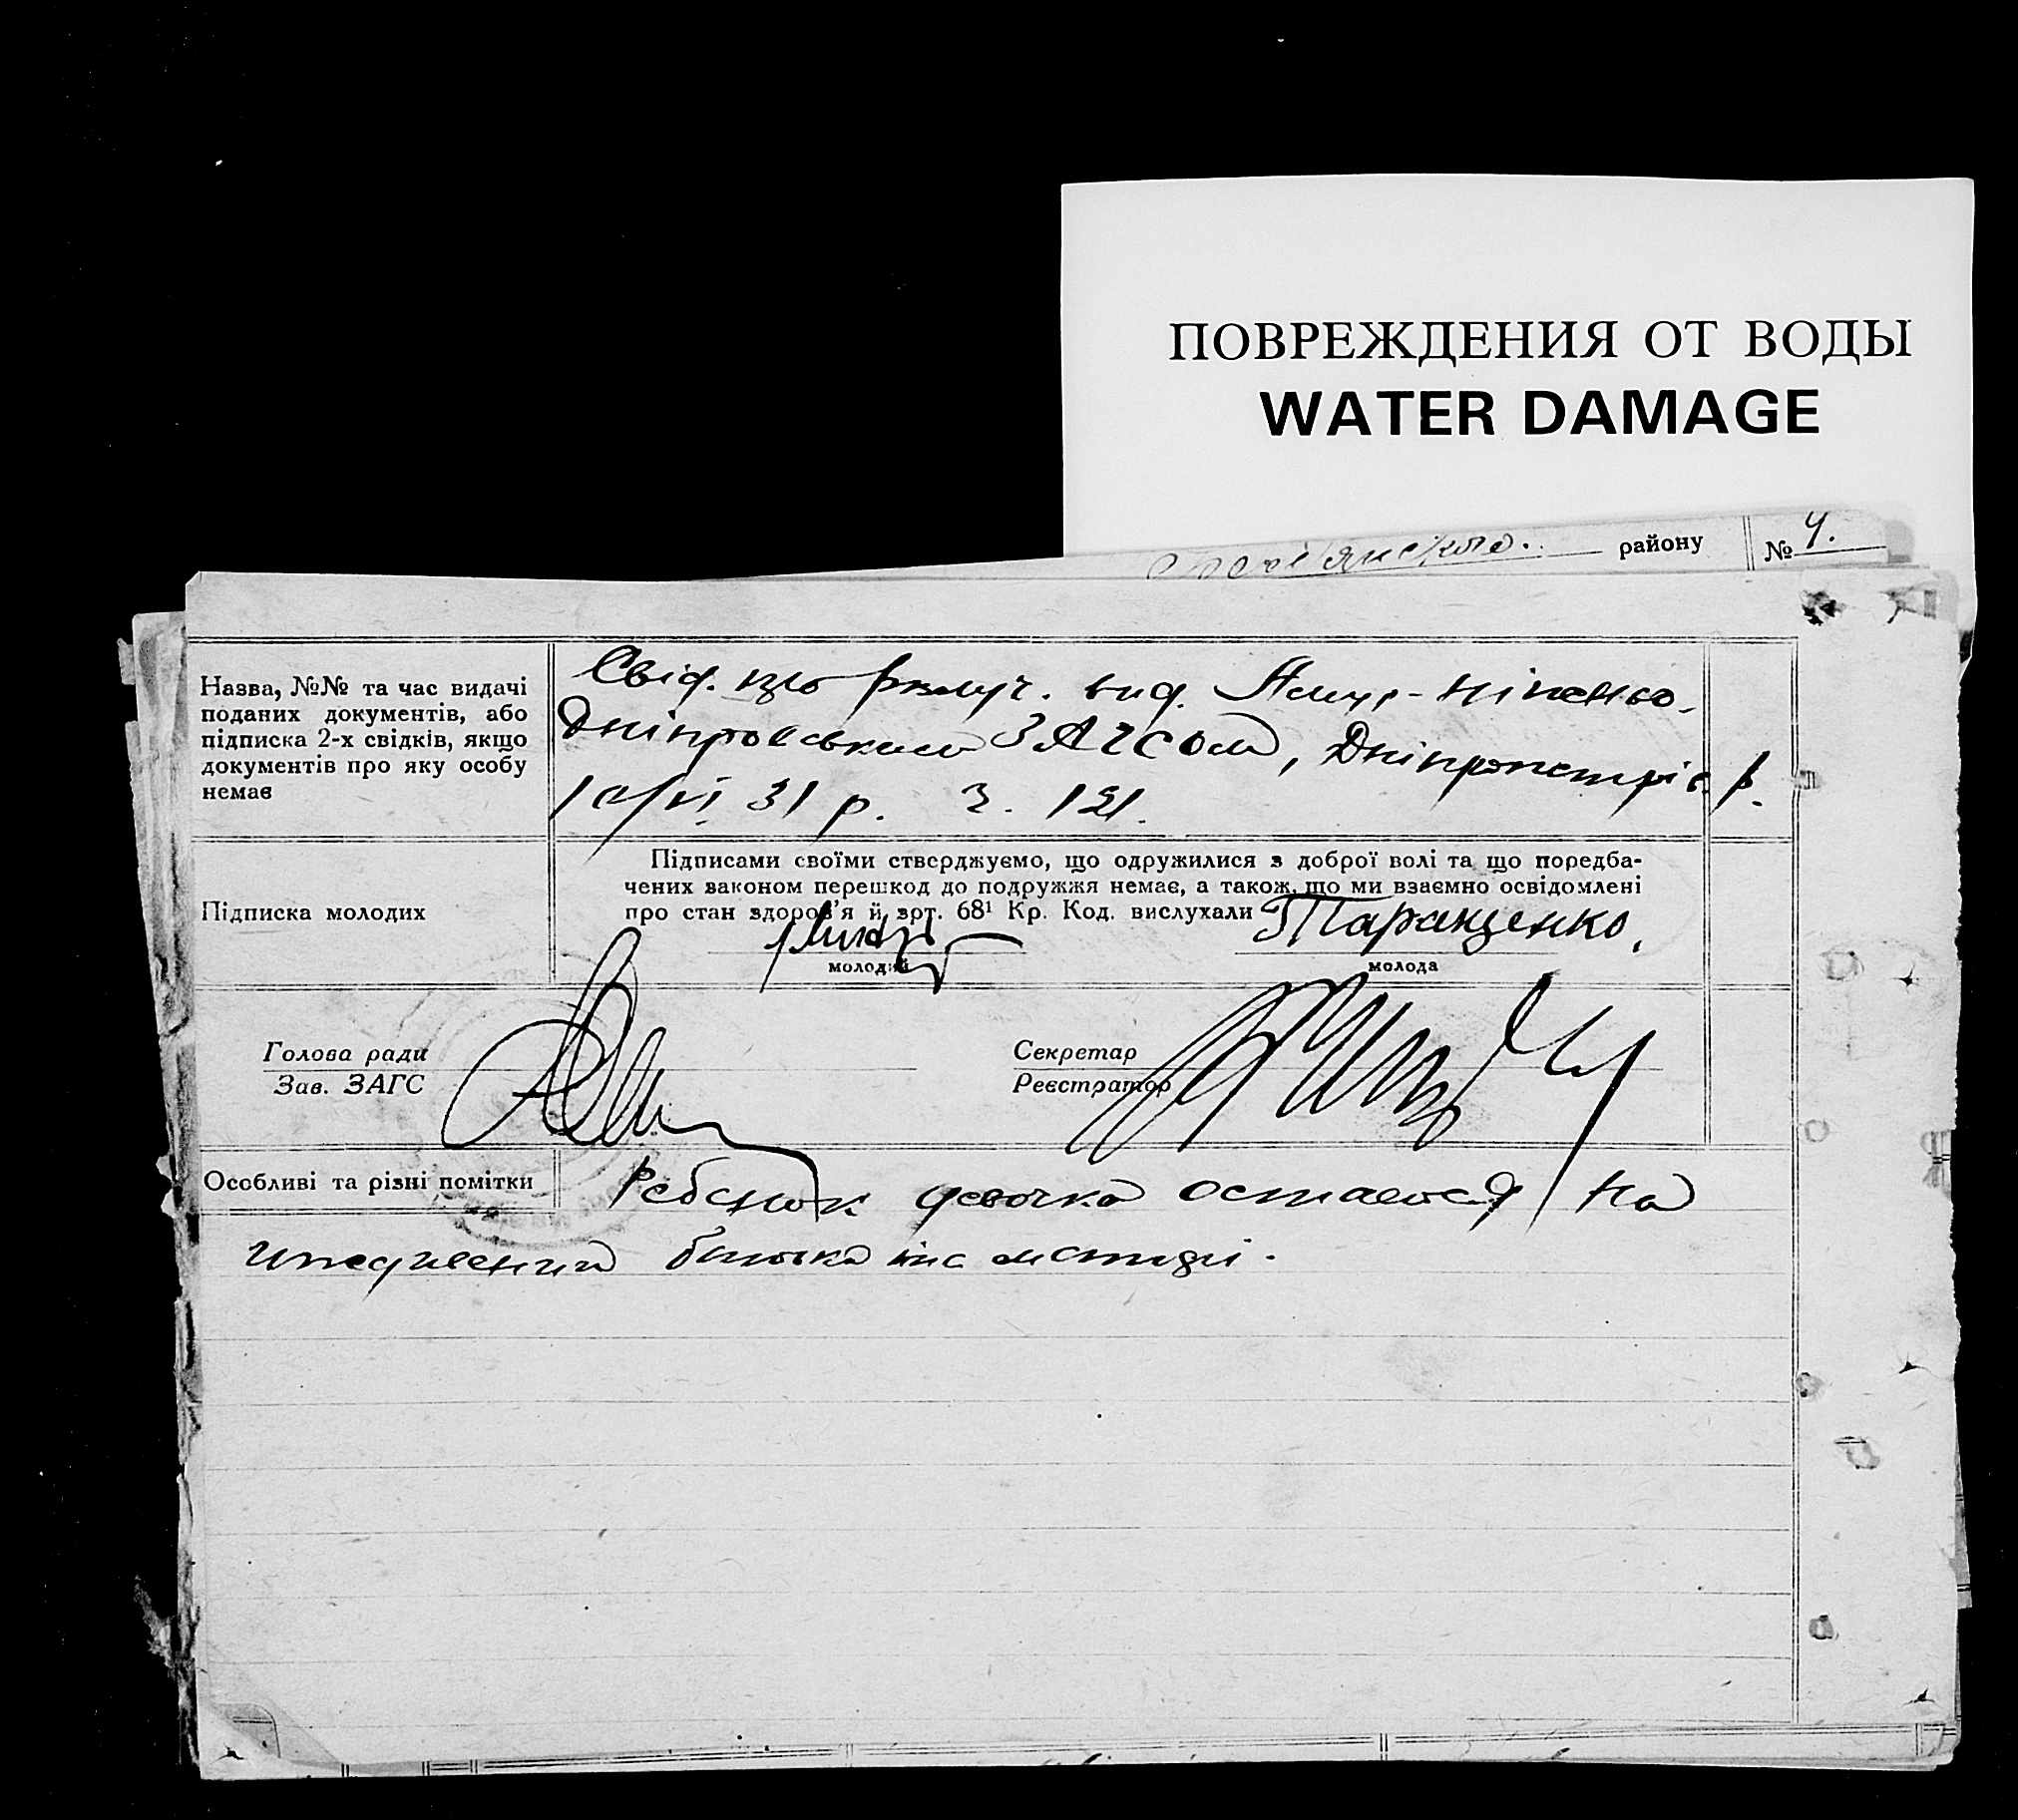 ПОВРЕЖДЕНИЯ ОТ ВОДЫ
WATER DAMAGE
району № 4.
Назва, №№ та час видачі
поданих документів, або
підписка 2-х свідків, якщо
документів про яку особу
немає
Свід. про розлуч. вид.
Дніпровським ЗАГСом, Дніпропетрів.
10/VI 31 р. З. 121.
Підписка молодих
Підписами своїми стверджуємо, що одружилися з доброї волі та що передба-
чених законом перешкод до подружжя немає, а також, що ми взаємно освідомлені
про стан здоров'я й зрт. 68¹ Кр. Код. вислухали
Таращенко.
молодий молода
Голова ради
Зав. ЗАГС
Секретар
Реєстратор
Особливі та різні помітки
Ребенок девочка остается на
иждивении батька